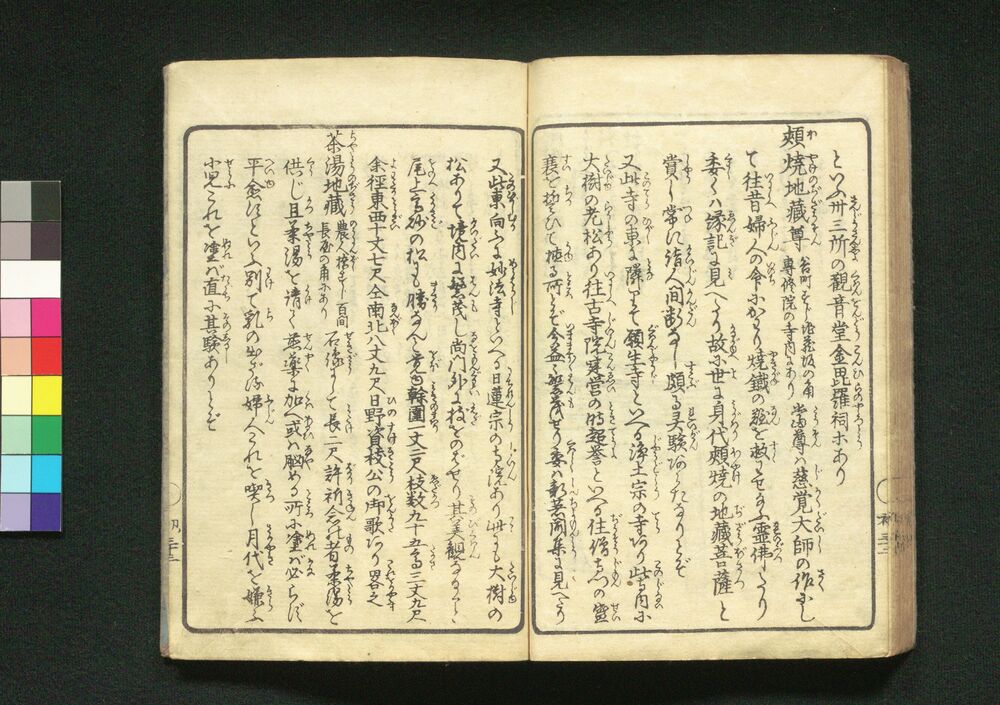 といふ卅三所の観音堂金毘羅祠ホあり
頬焼地藏尊 谷町 寺町 地藏坂の角 専修院の寺内にあり 當尊ハ慈覚大師の作にし
て往昔婦人の命にかはり焼鐵の難を救はせ給ふ霊佛たり
委しくハ縁記に見へたり故に世に身代頬焼の地藏菩薩と
賞し常に詣人間断なし頗る灵驗あらたなりとぞ
又此寺の東に隣りて願生寺といへる浄土宗の寺あり此寺内に
大樹の老松あり往古寺院穿営の時超誉といへる住僧
今益繁茂せり委ハ新著聞集に見へたり
又此東向ふに妙法寺といへる日蓮宗の寺院あり此にも大樹の
松ありて境内に繁茂し尚門外に枝をのばせり其美観なること
尾上高砂の松にも勝るべし 幹圍一丈二尺枝数九十五高三丈九尺
余徑東西十丈七尺仝南北八丈九尺日野資枝公の御歌あり畧之
茶湯地藏 農人橋すじ 百間長屋の角にあり 石像にして長二尺許祈念の者茶湯を
供じ且茶湯を請て 薬に加へ或ハ脳める所に塗バ必らず
平愈すといふ別て乳の出ざる婦人これを喫し月代を嫌ふ
小児これを塗バ直に其驗ありとぞ